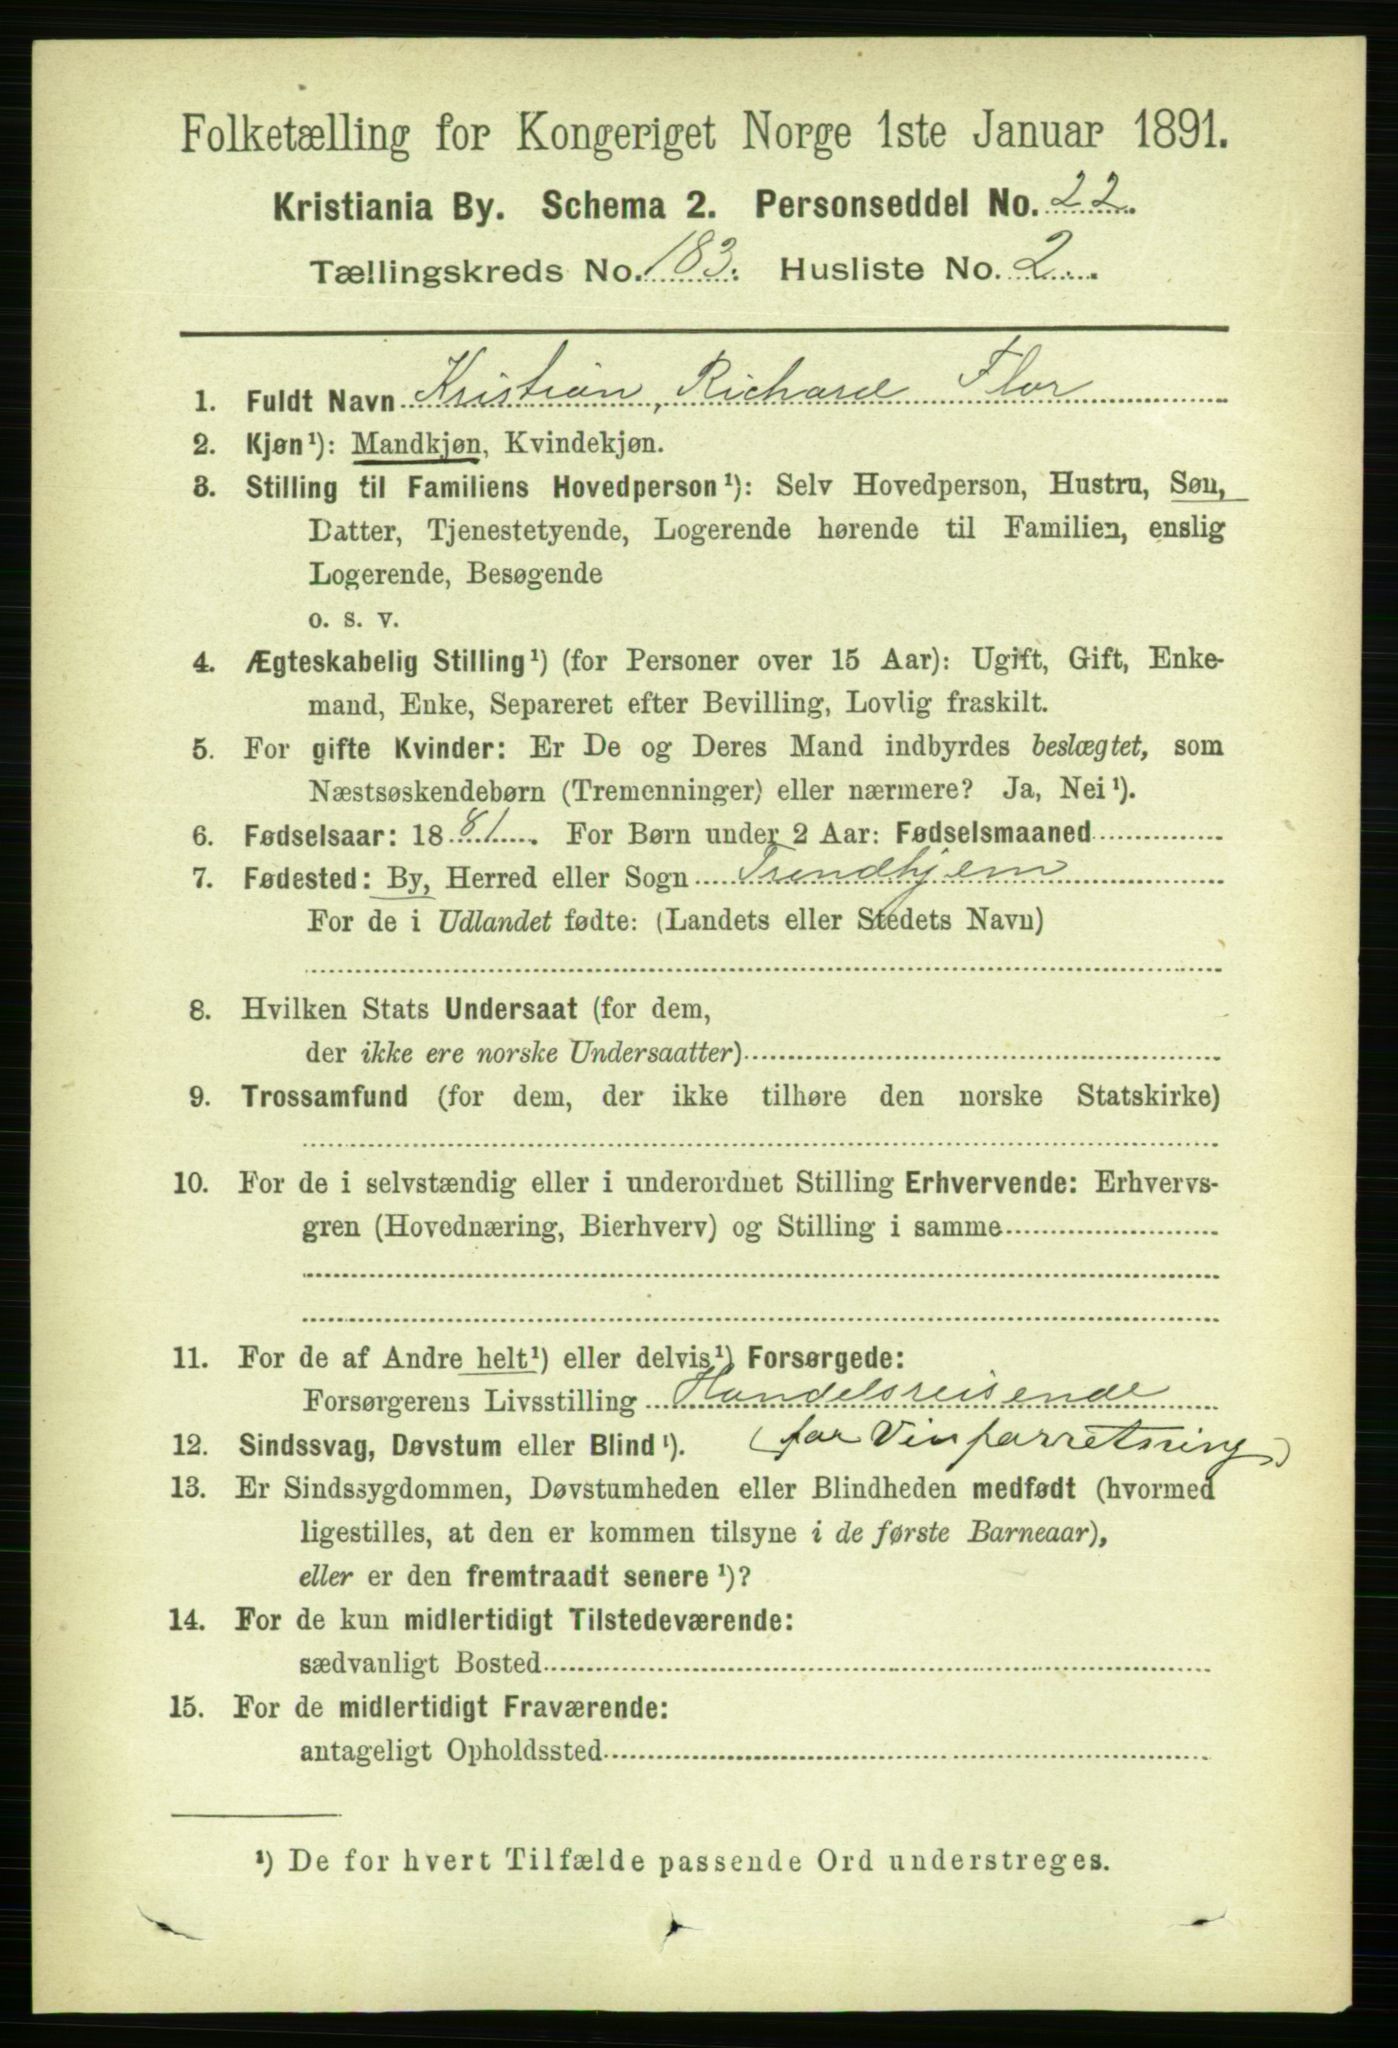 Folketælling for Kongeriget Norge 1ste Januar 1891.
Kristiania By. Schema 2. Personseddel No. 22.
Tællingskreds No. 183. Husliste No. 2
1. Fuldt Navn Kristian, Richard Flor
2. Kjøn¹): Mandkjøn, Kvindekjøn.
3. Stilling til Familiens Hovedperson¹): Selv Hovedperson, Hustru, Søn,
Datter, Tjenestetyende, Logerende hørende til Familien, enslig
Logerende, Besøgende
o. s. v.
4. Ægteskabelig Stilling¹) (for Personer over 15 Aar): Ugift, Gift, Enke-
mand, Enke, Separeret efter Bevilling, Lovlig fraskilt.
5. For gifte Kvinder: Er De og Deres Mand indbyrdes beslægtet, som
Næstsøskendebørn (Tremenninger) eller nærmere? Ja, Nei¹).
6. Fødselsaar: 1881. For Børn under 2 Aar: Fødselsmaaned
7. Fødested: By, Herred eller Sogn Trondhjem
For de i Udlandet fødte: (Landets eller Stedets Navn)
8. Hvilken Stats Undersaat (for dem,
der ikke ere norske Undersaatter)
9. Trossamfund (for dem, der ikke tilhøre den norske Statskirke)
10. For de i selvstændig eller i underordnet Stilling Erhvervende: Erhvervs-
gren (Hovednæring, Bierhverv) og Stilling i samme
11. For de af Andre helt¹) eller delvis¹) Forsørgede:
Forsørgerens Livsstilling Handelsreisende
12. Sindssvag, Døvstum eller Blind¹). (for Vinforretning)
13. Er Sindssygdommen, Døvstumheden eller Blindheden medfødt (hvormed
ligestilles, at den er kommen tilsyne i de første Barneaar),
eller er den fremtraadt senere¹)?
14. For de kun midlertidigt Tilstedeværende:
sædvanligt Bosted
15. For de midlertidigt Fraværende:
antageligt Opholdssted
¹) De for hvert Tilfælde passende Ord understreges.